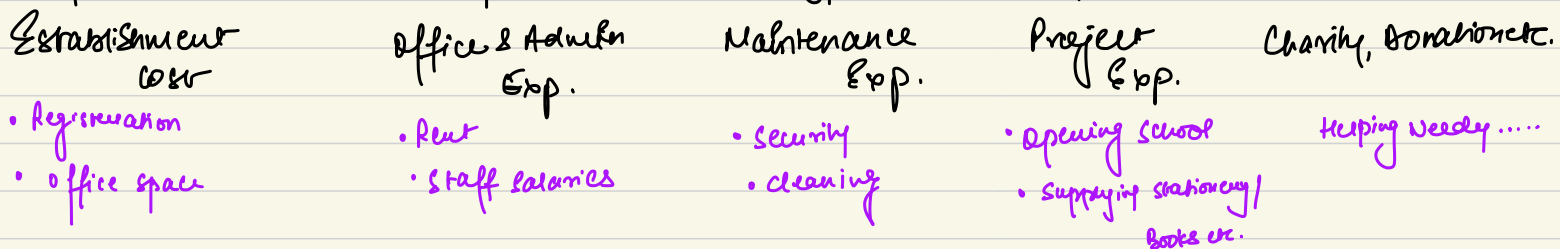 Establishment
cost
• Registration
• Office space
Office & Admin
Exp.
• Rent
• Staff salaries
Maintenance
Exp.
• Security
• cleaning
Project
Exp.
• opening school
• supplying stationery/
Books etc.
Charity, Donation etc.
Helping Needy.....